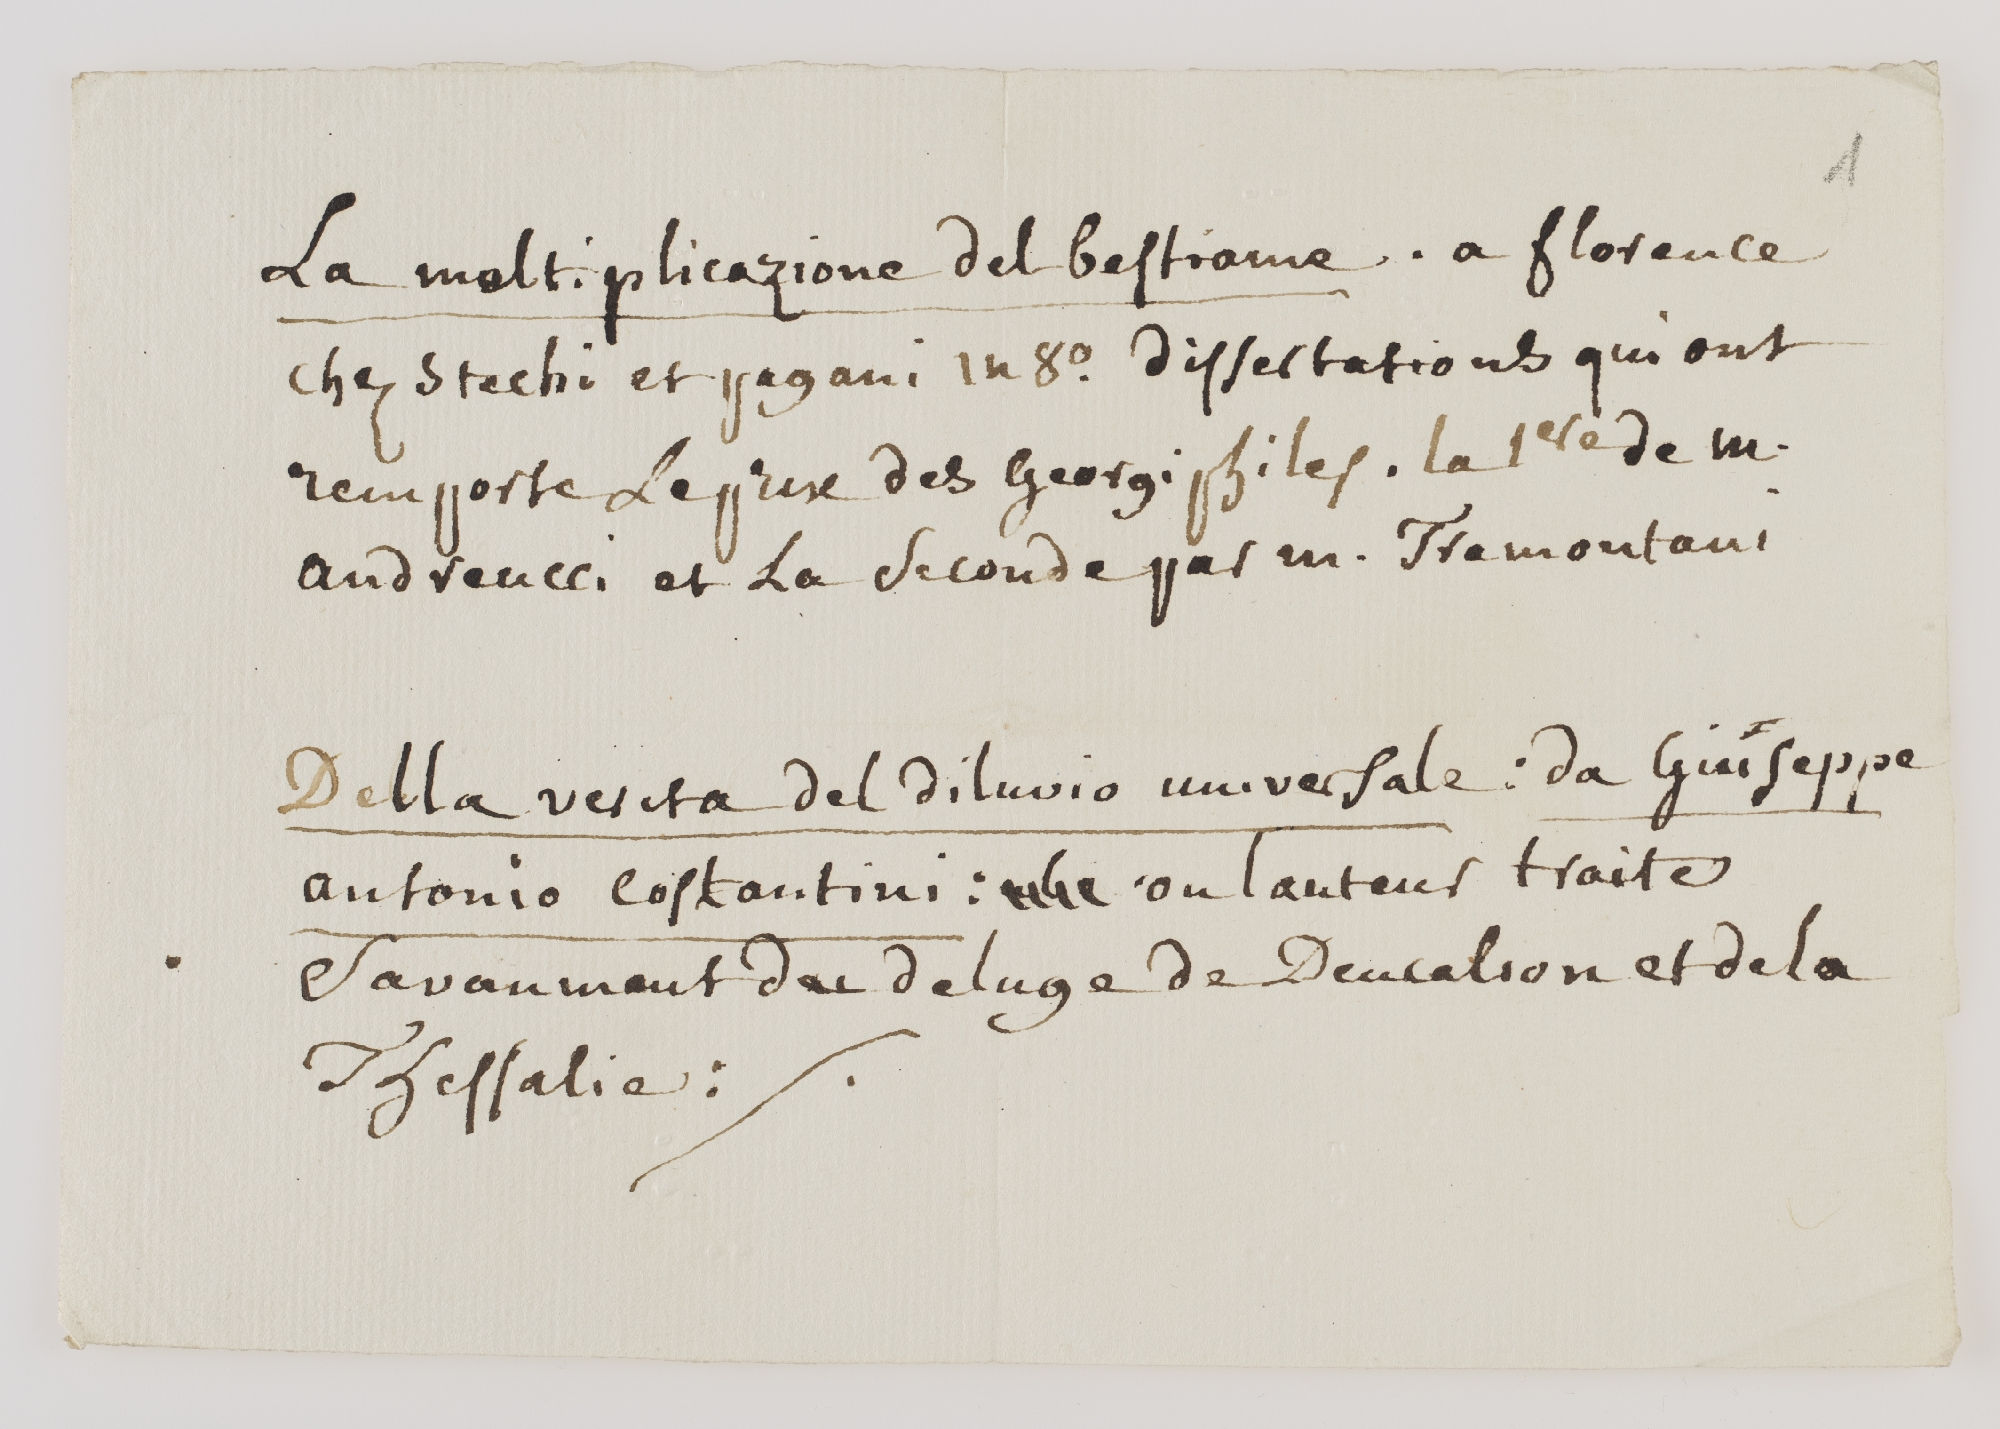 1
La moltiplicazione del bestiame . a florence
chez Stechi et pagani in 8º. dissertations qui ont
remporte Le prix des Georgiphiles . la 1ere de m.
andreucci et La Seconde par m. Tramontani
Della verita del diluvio universale : da Giuseppe
antonio Costantini : ou lauteur traite
Savanment du deluge de Deucalion et de la
Thessalie :